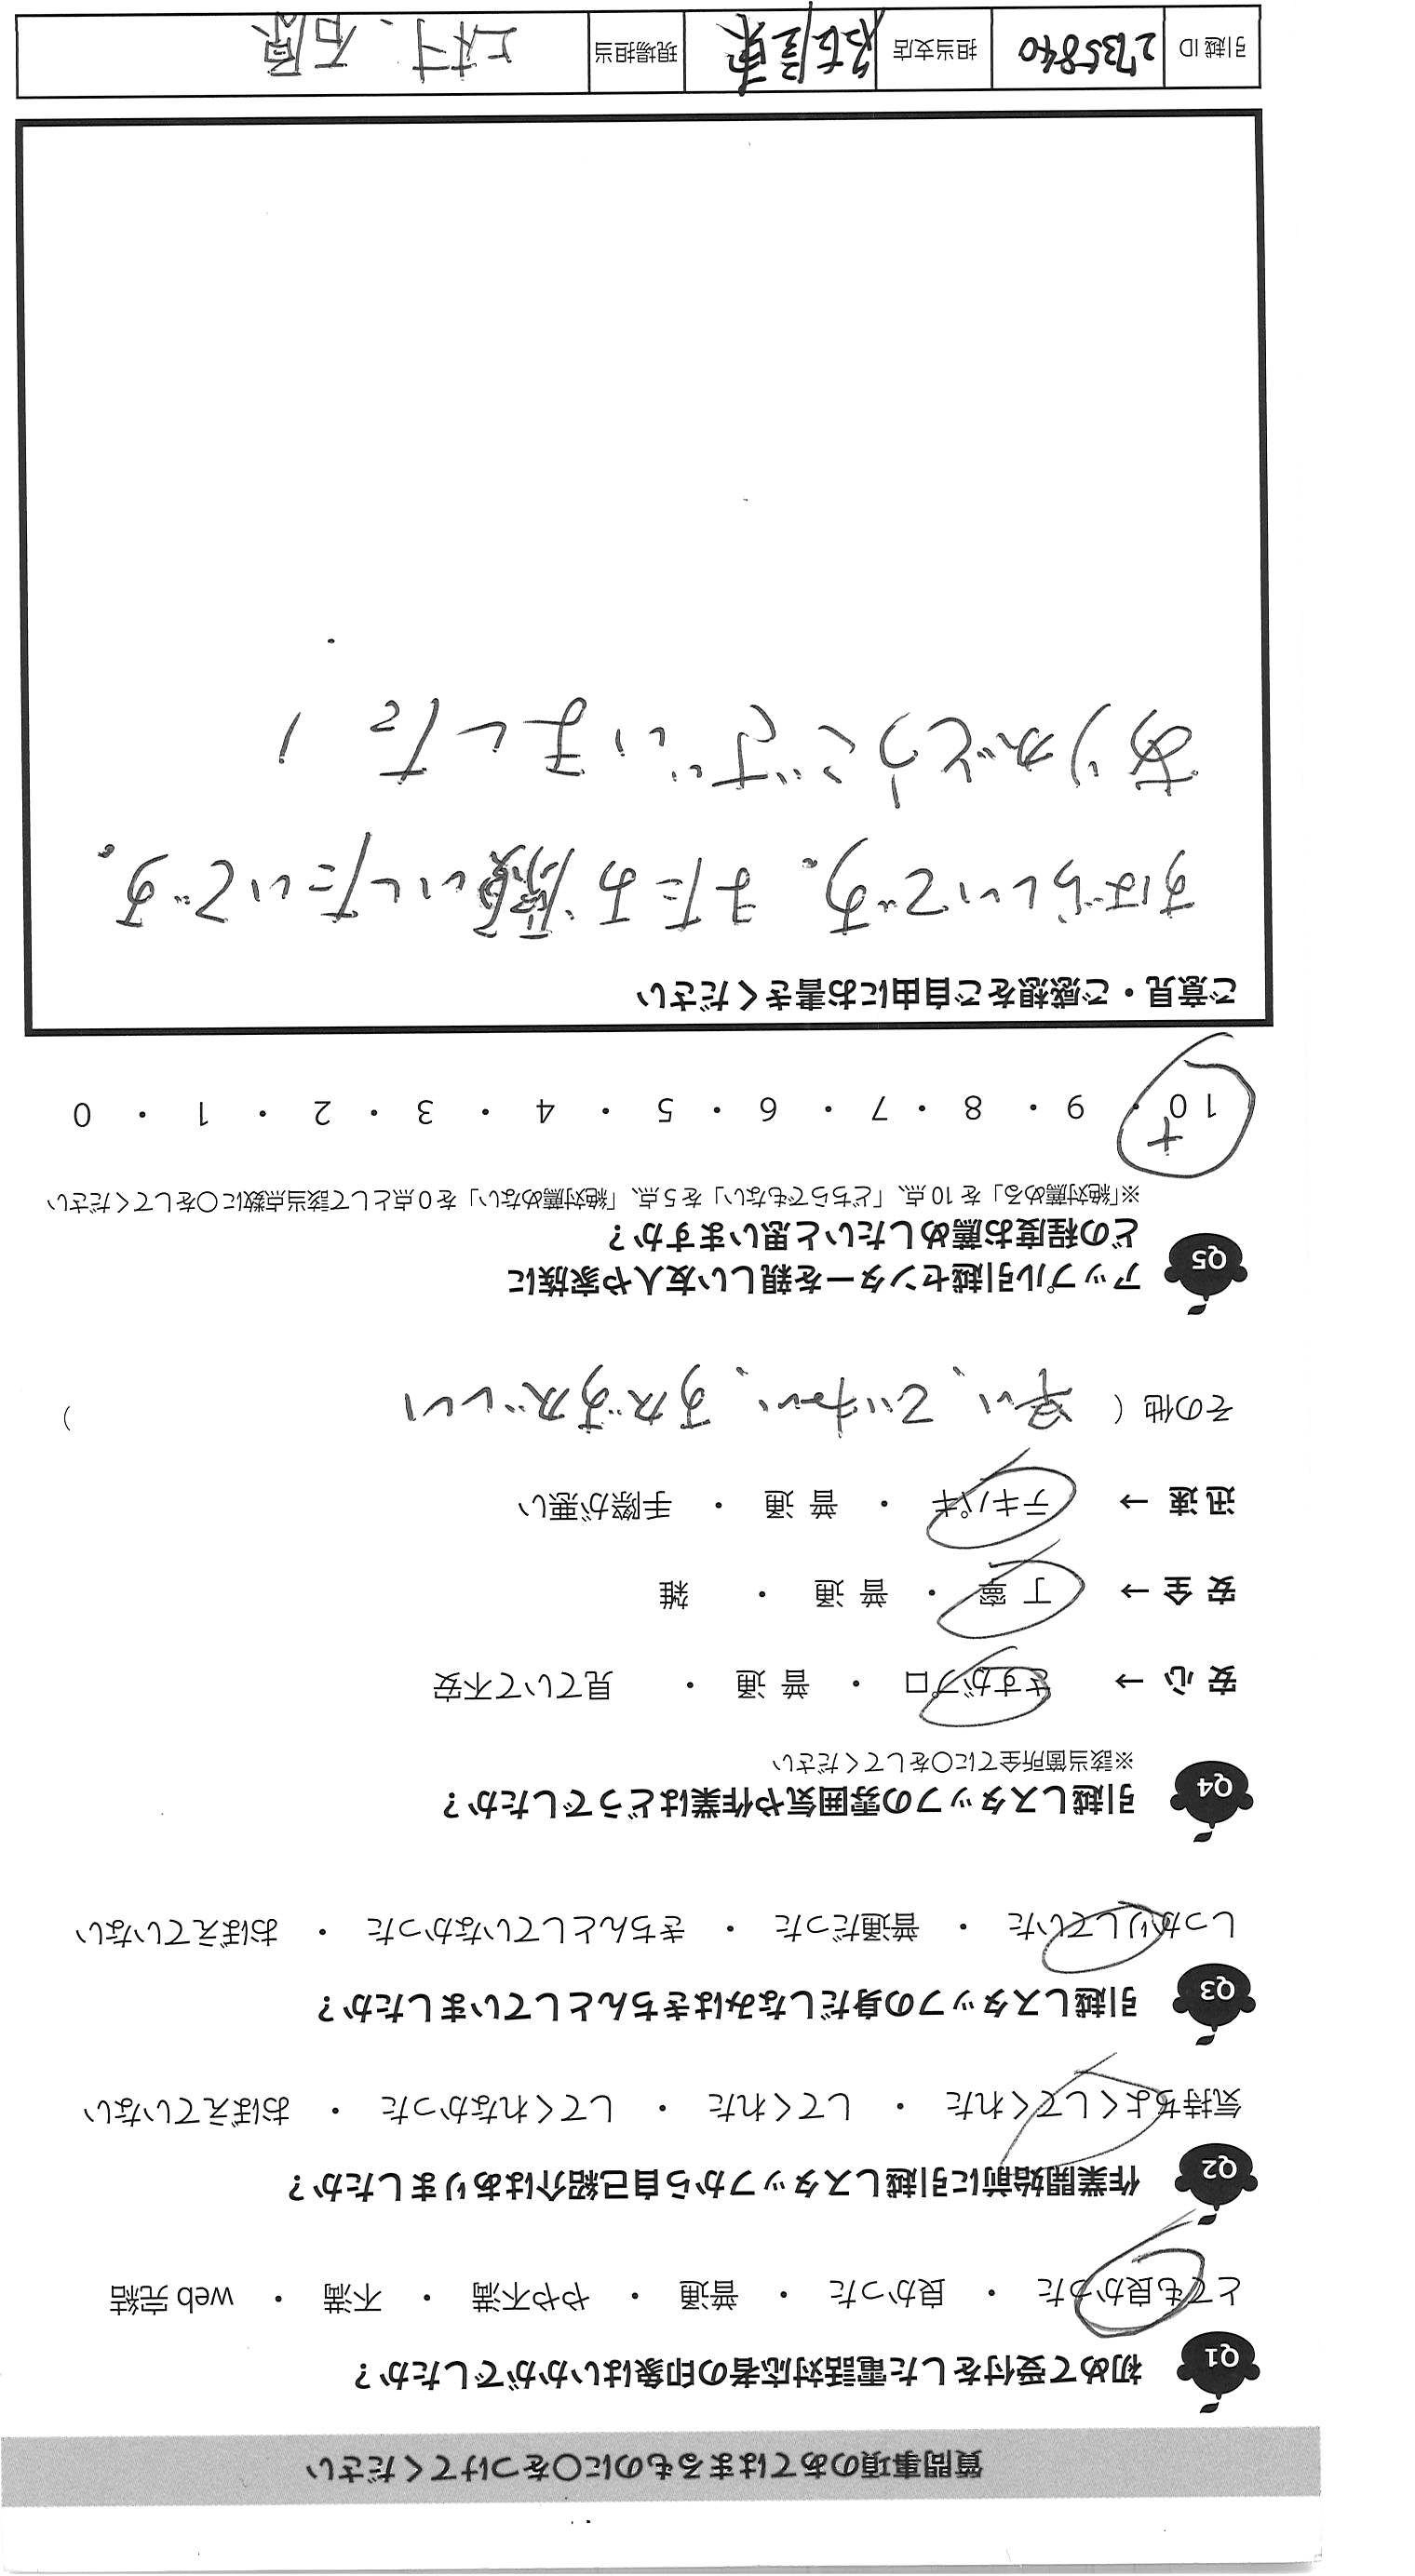 質問事項のあてはまるものに○をつけてください
Q1 初めて受付をした電話対応者の印象はいかがでしたか？
とても良かった ・ 良かった ・ 普通 ・ やや不満 ・ 不満 ・ web 完結
Q2 作業開始前に引越しスタッフから自己紹介はありましたか？
気持ちよくしてくれた ・ してくれた ・ してくれなかった ・ おぼえていない
Q3 引越しスタッフの身だしなみはきちんとしていましたか？
しっかりしていた ・ 普通だった ・ きちんとしていなかった ・ おぼえていない
Q4 引越しスタッフの雰囲気や作業はどうでしたか？
※該当箇所全てに○をしてください
安 心 → さすがプロ ・ 普 通 ・ 見ていて不安
安 全 → 丁 寧 ・ 普 通 ・ 雑
迅 速 → テキパキ ・ 普 通 ・ 手際が悪い
その他 ( 早い、ていねい、すがすがしい )
Q5 アップル引越センターを親しい友人や家族に
どの程度お薦めしたいと思いますか？
※「絶対薦める」を 10 点、「どちらでもない」を 5 点、「絶対薦めない」を 0 点として該当点数に○をしてください
+
10 ・ 9 ・ 8 ・ 7 ・ 6 ・ 5 ・ 4 ・ 3 ・ 2 ・ 1 ・ 0
ご意見・ご感想をご自由にお書きください
すばらしいです。またお願いしたいです。
ありがとうございました！
引越 ID 2735840 担当支店 現場担当 上村、石原